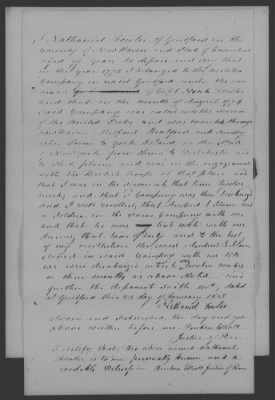 I Nathaniel Fowler of Guilford in the
County of New Haven and State of Connecticut
aged years do depose and say that
in the year 1776 I belonged to the militia
Company in said Guilford under the com
mand of Capt Noah Fowler
and that in the month of August 1776
said Company was called into the service
of the United States and was marched through
New Haven Milford Stratford and
other towns to York Island in the State
of New York from thence to Westchester
to White plains and was in the engagement
with the British troops at that place and
that I was in the service at that time
weeks and that said Company was then discharged
and I well recollect that Andred S. Stone was
a soldier in the same Company with me
and that he was with us
during that tour of duty and to the best
of my recollection the said Andred S. Stone
served in said Company with me till
we were discharged weeks
or three months as above stated and
further the deponent saith not, dated
at Guilford this 23 day of January 1838
Nathaniel Fowler
Sworn and subscribed the day and year
above written before me Reuben Elliott
Justice of Peace
I certify that the above named Nathaniel
Fowler is to me personally known and a
credible Witness Reuben Elliott Justice of Peace